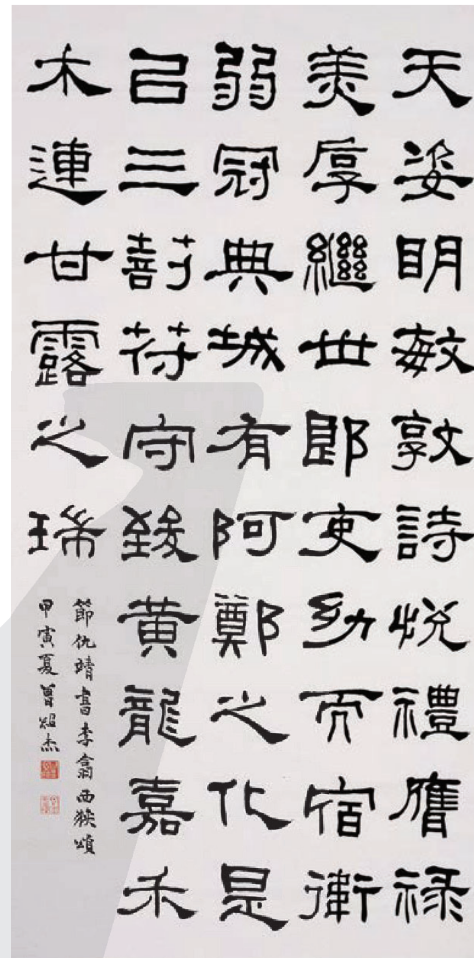 天姿明敏敦詩悅禮膺祿
美厚繼世郎吏幼而宿衛
弱冠典城有阿鄭之化是
以三剖符守致黃龍嘉禾
木連甘露之瑞
節仇靖書李翕西狹頌
甲寅夏曾紹杰